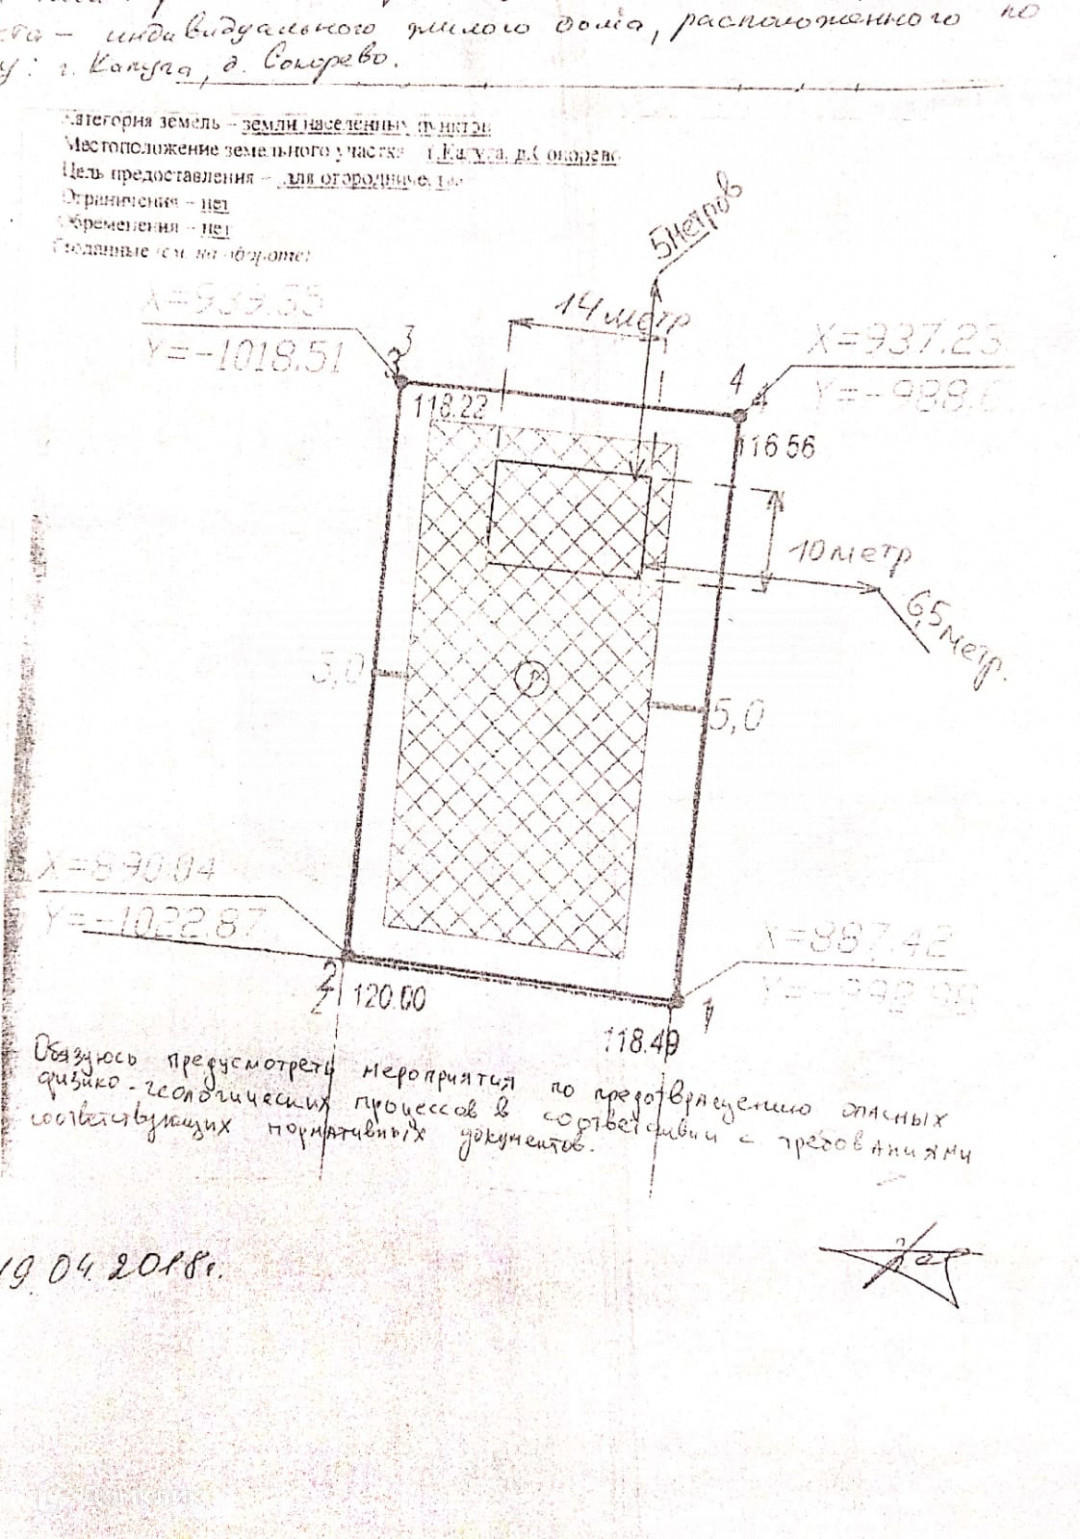 индивидуального жилого дома, расположенного по
у: г. Калуга, д. Сокорево.
Категория земель – земли населенных пунктов
Местоположение земельного участка г.Калуга, д.Сокорево
Цель предоставления – для огородничества
Ограничения – нет
Обременения – нет
Геоданные (см. на обороте)
5 метров
14 метр
X=939.35
Y=-1018.51
3
3
4
4
X=937.23
Y=-988.6
118.22
116.56
10 метр
6,5 метр.
3,0
1
5,0
X=890.04
Y=-1022.87
X=887.42
2
2
120.00
1
118.49
Обязуюсь предусмотреть мероприятия по предотвращению опасных
физико-геологических процессов в соответствии с требованиями
соответствующих нормативных документов.
19.04.2018г.